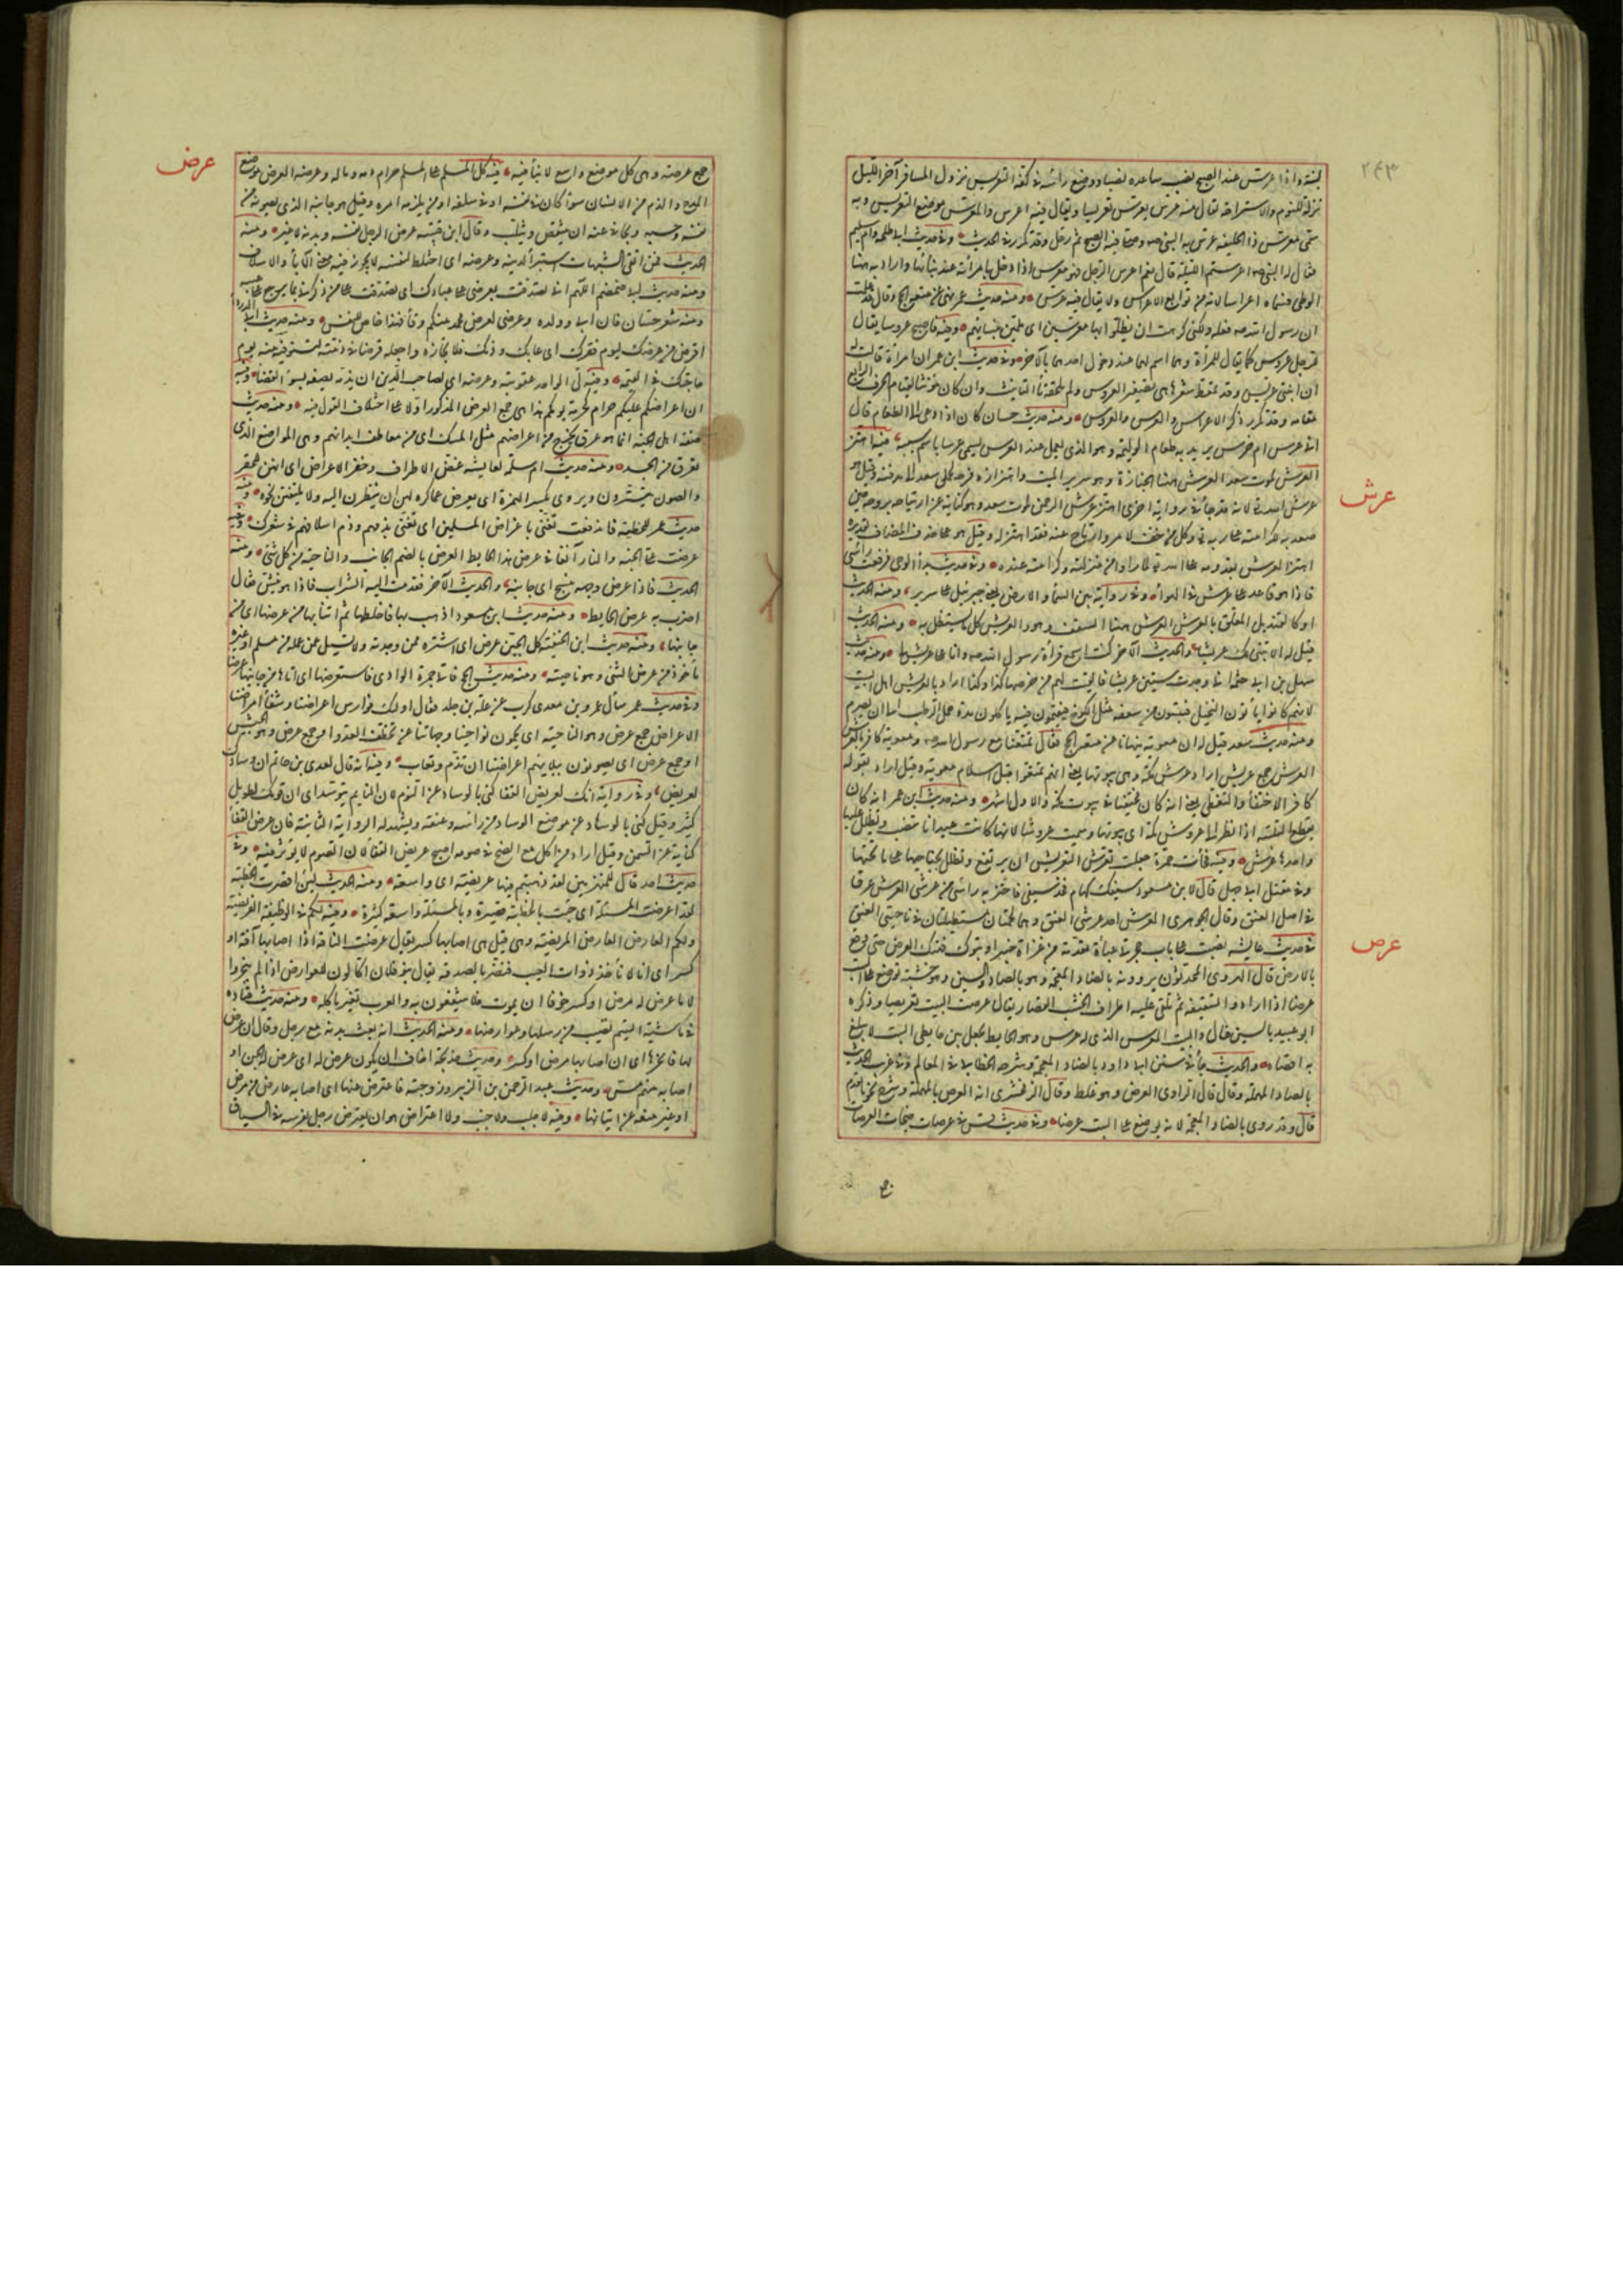 ٢٤٣
بمينه واذا عرّس عند الصبح نصب ساعده نصبا ووضع رأسه في كفه التعريس نزول المسافر آخر الليل
نزلة للنوم والاستراحة يقال منه عرّس يعرّس تعريسا ويقال فيه اعرس والمعرّس موضع التعريس وبه
سمّى معرّس ذا الحليفة عرّس به النبى صه وصلى فيه الصبح ثم رحل وقد تكرر في الحديث وفي حديث ابي طلحة وام سليم
فقال له النبى صه اعرستم الليلة قال نعم اعرس الرجل فهو معرس اذا دخل بامرأته عند بنائها واراد به ههنا
الوطى فسماه اعراسا لانه من توابع الاعراس ولا يقال فيه عرّس ومنه حديث عمر نهى عن متعة الحج وقال قد علمت
ان رسول الله صه فعله ولكنى كرهت ان يظلوا بها معرسين اى ملمّين بنسائهم وفيه فاصبح عروسا يقال
للرجل عروس كما يقال للمرأة وهو اسم لهما عند دخول احدهما بالآخر وفي حديث ابن عمر ان امرأة قالت له
ان ابنتى عريّس وقد تمعط شعرها هى تصغير العروس ولم تلحقه تاء التأنيث وان كان مؤنثا لقيام الحرف الرابع
مقامه وقد تكرر ذكر الاعراس والعرس والعروس ومنه حديث حسان كان اذا دعى الى الطعام قال
افى عرس ام خرس يريد به طعام الوليمة وهو الذى يعمل عند العرس يسمى عرسا باسم سببه فيه اهتز
عرش
العرش لموت سعد العرش ههنا الجنازة وهو سرير الميت واهتزازه فرحه لحمل سعد الى مدفنه وقيل هو
عرش الله تع لانه قد جاء في رواية اخرى اهتز عرش الرحمن لموت سعد وهو كناية عن ارتياحه بروحه حين
صعد به لكرامته على ربه وكل من خف لامر وارتاح عنه فقد اهتز له وقيل هو على حذف المضاف تقديره
اهتز اهل العرش بقدومه على الله تع لما راوا من منزلته وكرامته عنده وفي حديث بدء الوحى فرفعت رأسى
فاذا هو قاعد على عرش في الهواء وفي رواية بين السماء والارض يعنى جبرئيل على سرير ومنه الحديث
او كالقنديل المعلق بالعرش العرش ههنا السقف وهو والعريش كل ما يستظل به ومنه الحديث
قيل له الا نبنى لك عريشا والحديث الآخر كنت اسمع قراءة رسول الله صه وانا على عرش لى ومنه حديث
سهل بن ابي حثمة انى وجدت ستين عريشا فالقيت لهم من خرصها كذا وكذا اراد بالعريش اهل البيت
لانهم كانوا يأتون النخيل فيبتنون من سعفه مثل الكوخ فيقيمون فيه ياكلون مدة حمل الرطب الى ان يصرم
ومنه حديث سعد قيل له ان معوية ينهانا عن متعة الحج فقال تمتعنا مع رسول الله صه ومعوية كافر بالعرش
العرش جمع عريش اراد عرش مكة وهى بيوتها يعنى انهم تمتعوا قبل اسلام معوية وقيل اراد بقوله
كافر الاختفاء والتغطى يعنى انه كان مختفيا في بيوت مكة والاول اشهر ومنه حديث ابن عمر انه كان
يقطع التلبية اذا نظر الى عروش مكة اى بيوتها وسميت عروشا لانها كانت عيدانا تنصب ويظلل عليها
واحدها عرش وفيه فجاءت حمرة جعلت تعرّش التعريش ان يرتفع وتظلل بجناحيها على ما تحتها
وفي مقتل ابي جهل قال لابن مسعود سيفك كهام فخذ سيفى فاحتز به رأسى من عرشى العرش عرق
في اصل العنق وقال الجوهرى العرش احد عرشى العنق وهما لحمتان مستطيلتان في ناحيتى العنق
عرص
في حديث عايشة نصبت على باب حجرتى عباءة مقدمه من غزاة خيبر او تبوك فهتك العرص حتى وقع
بالارض قال الهروى المحدثون يروونه بالضاد المعجمة وهو بالصاد والسين وهو خشبة توضع على البيت
عرضا اذا ارادوا تسقيفه ثم تلقى عليه اطراف الخشب القصار يقال عرصت البيت تعريصا وذكره
ابو عبيد بالسين وقال والبيت المعرس الذى له عرس وهو الحايط يجعل بين حايطى البيت لا يبلغ
به اقصاه والحديث جاء في سنن ابي داود بالضاد المعجمة وشرحه الخطابي في المعالم وفي غريب الحديث
بالصاد المهملة وقال قال الراوى العرض وهو غلط وقال الزمخشرى انه العرص بالمهملة وشرح نحو ما تقدم
قال وقد روى بالضاد المعجمة لانه يوضع على البيت عرضا وفي حديث قس في عرصات جثجاث العرصات
عرض
جمع عرصة وهى كل موضع واسع لا بناء فيه فيه كل المسلم على المسلم حرام دمه وماله وعرضه العرض موضع
المدح والذم من الانسان سواء كان في نفسه او في سلفه او من يلزمه امره وقيل هو جانبه الذى يصونه من
نفسه وحسبه ويحامى عنه ان ينتقص ويثلب وقال ابن قتيبة عرض الرجل نفسه وبدنه لا غير ومنه
الحديث فمن اتقى الشبهات استبرأ لدينه وعرضه اى احتاط لنفسه لا يجوز فيه معنى الآباء والاسلاف
ومنه حديث ابي ضمضم اللهم انى تصدقت بعرضى على عبادك اى تصدقت على من ذكرنى بما يرجع الى عيبه
ومنه شعر حسان فان ابي ووالده وعرضى لعرض محمد منكم وقاء فهذا خاص للنفس ومنه حديث ابي الدرداء
اقرض من عرضك ليوم فقرك اى من عابك وذمك فلا تجازه واجعله قرضا في ذمته لتستوفيه منه يوم
حاجتك في القيمة وفيه لىّ الواجد عقوبته وعرضه اى لصاحب الدين ان يذمه ويصفه بسوء القضاء وفيه
ان اعراضكم عليكم حرام كحرمة يومكم هذا هى جمع العرض المذكور اولا على اختلاف القول فيه ومنه حديث
صفة اهل الجنة انما هو عرق يخرج من اعراضهم مثل المسك اى من معاطف ابدانهم وهى المواضع التى
تعرق من الجسد ومنه حديث ام سلمة لعايشة غض الاطراف وخفر الاعراض اى انهن للخفر
والصون يتسترون ويروى بكسر الهمزة اى يعرض عما كره لهن ان ينظرن اليه ولا يلتفتن نحوه ومنه
حديث عمر للحطيئة فاندفعت تغنى باعراض المسلمين اى تغنى بذمهم وذم اسلافهم في شعرك وفيه
عرضت على الجنة والنار آنفا في عرض هذا الحايط العرض بالضم الجانب والناحية من كل شئ ومنه
الحديث فاذا عرض وجهه منسح اى جانبه والحديث الآخر فقدمت اليه الشراب فاذا هو ينش فقال
اضرب به عرض الحايط ومنه حديث ابن مسعود اذهب بها فاخلطها ثم ائتنا بها من عرضها اى من
جانبها ومنه حديث ابن الحنفية كل الجبن عرض اى اشتره ممن وجدته ولا تسئل عن عمله من مسلم او غيره
مأخوذ من عرض الشئ وهو ناحيته ومنه حديث الحج فاتى جمرة الوادى فاستعرضها اى اتاها من جانبها عرضا
وفي حديث عمر سأل عمرو بن معدى كرب عن علة بن جلد فقال اولئك فوارس اعراضنا وشفاء امراضنا
الاعراض جمع عرض وهو الناحية اى يحمون نواحينا وجهاتنا عن تخطف العدو او جمع عرض وهو الجيش
او جمع عرض اى يصونون ببلائهم اعراضنا ان تذم وتعاب وفيه انه قال لعدى بن حاتم ان وسادك
لعريض وفي رواية انك لعريض القفا كنى بالوساد عن النوم لان النايم يتوسد اى ان نومك لطويل
كثير وقيل كنى بالوساد عن موضع الوساد من رأسه وعنقه ويشهد له الرواية الثانية فان عرض القفا
كناية عن السمن وقيل اراد من اكل مع الصبح في صومه اصبح عريض القفا لان الصوم لا يؤثر فيه وفي
حديث احد قال للمنهزمين لقد ذهبتم فيها عريضة اى واسعة ومنه الحديث لئن اقصرت الخطبة
لقد اعرضت المسئلة اى جئت بالخطبة قصيرة وبالمسئلة واسعة كثيرة وفيه لكم في الوظيفة الفريضة
ولكم العارض العارض المريضة وقيل هى التى اصابها كسر يقال عرضت الناقة اذا اصابها آفة او
كسر اى انا لا نأخذ ذوات العيب فنضر بالصدقة يقال بنو فلان اكالون للعوارض اذا لم ينحروا
الا ما عرض له مرض او كسر خوفا ان يموت فلا ينتفعون به والعرب تعيّر باكله ومنه حديث قتادة
في ماشية اليتيم تصيب من رسلها وعوارضها ومنه الحديث انه بعث بدنة مع رجل وقال ان عرض
لها فانحرها اى ان اصابها مرض او كسر وحديث خديجة اخاف ان يكون عرض له اى عرض له الجن او
اصابه منهم مس وحديث عبد الرحمن بن الزبير وزوجته فاعترض عنها اى اصابه عارض من مرض
او غيره منعه عن اتيانها وفيه لا جلب ولا جنب ولا اعتراض هو ان يعترض رجل بفرسه في السباق